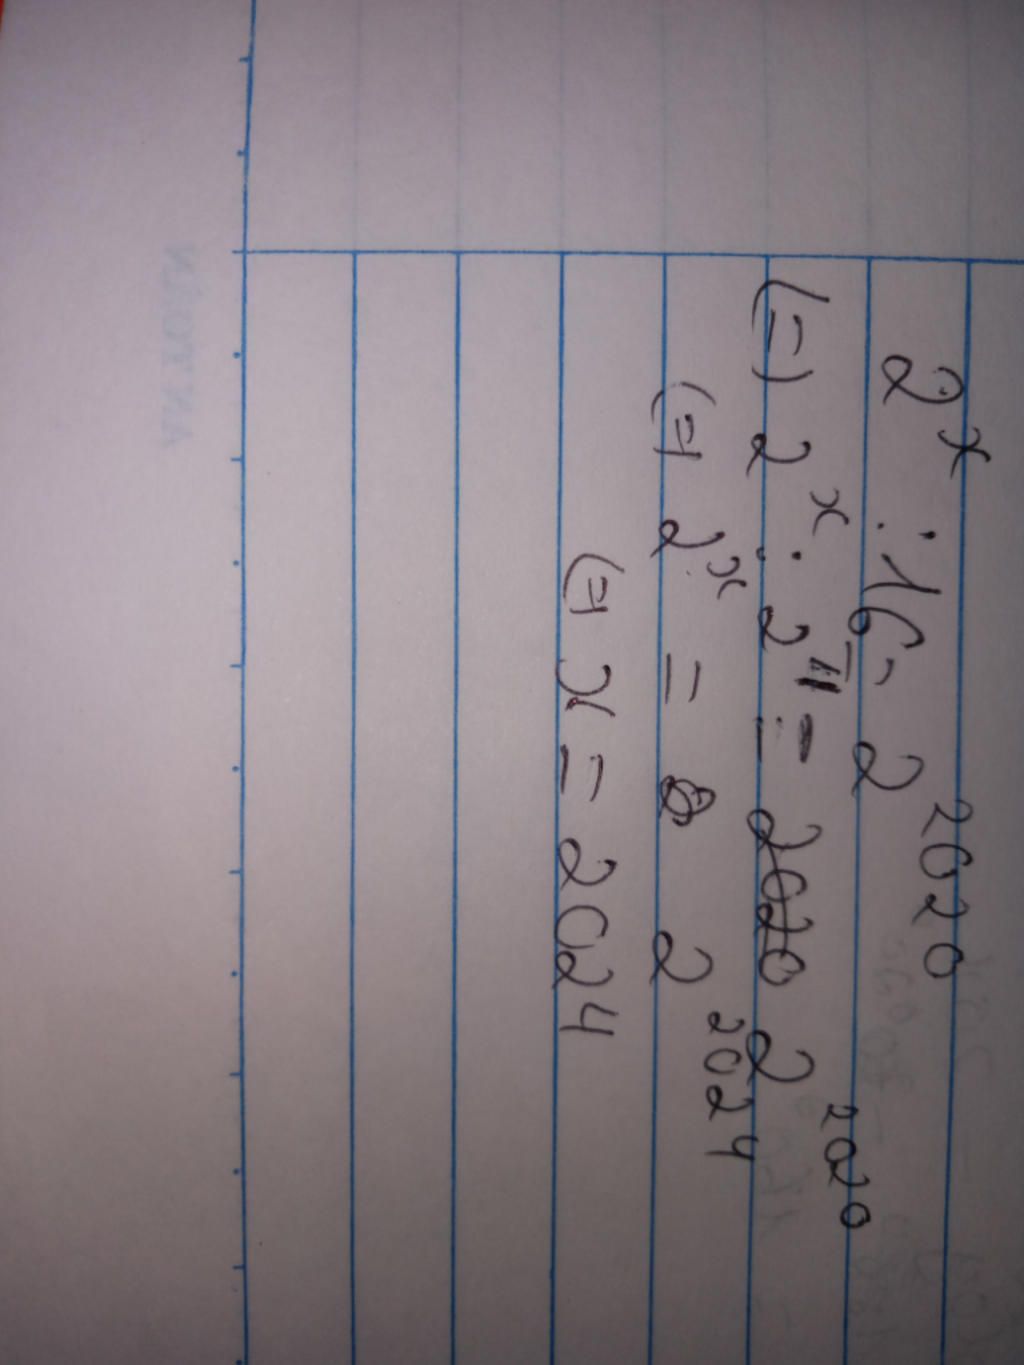 2^x : 16 = 2^2020
(=) 2^x : 2^4 = 2^2020
(=) 2^x = 2^2024
(=) x = 2024